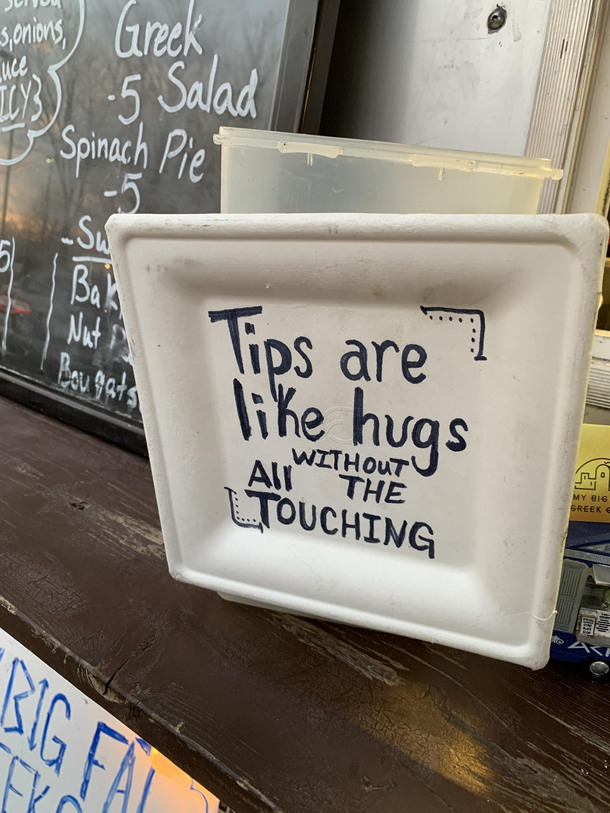 served
s, onions,
uce
ICY}
Greek
-5 Salad
Spinach Pie
-5
Nut
Tips are
like hugs
WITHOUT
All THE
TOUCHING
MY BIG
GREEK
BIG FA